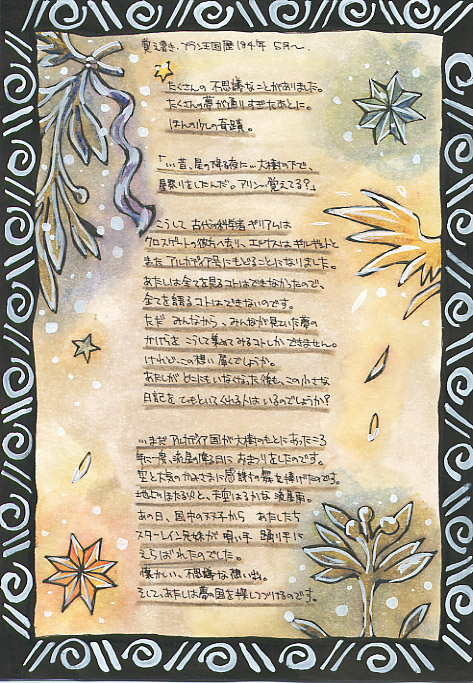 覚え書き、フラン王国暦194年 5月〜
たくさんの 不思議なことがありました。
たくさんの夢が通りすぎたあとに。
ほんの少しの奇蹟。
「…昔、星の降る夜に…大樹の下で、
星祭りをしたんだ。アリン…覚えてる?」
こうして 古代科学者 ギリアムは
クロスゲートの彼方へ去り、エリクスは
また アルカディア号にもどることになりました。
あたしは全てを見るコトはできなかったので、
全てを語るコトはできないのです。
ただ みんなから、みんなが見ていた夢の
かけらを こうして集めてみるコトしか できません。
けれど、この想い 届くでしょうか。
あたしが どこにもいなくなった後も、この小さな
日記を てもといてくれる人は いるのでしょうか?
…まだ アルカディア国が大樹のもとにあったころ
年に一度、流星の降る日に おまつりをしたのです。
空と大気のかみさまに感謝の舞を捧げたのです。
地上のほたる火と、天空はるかな 流星雨。
あの日、国中の双子から あたしたち
スターレイン兄妹が 唄い手 踊り手に
えらばれたのでした。
懐かしい、不思議な想い出。
そして、あたしは夢の国を探しつづけるのです。